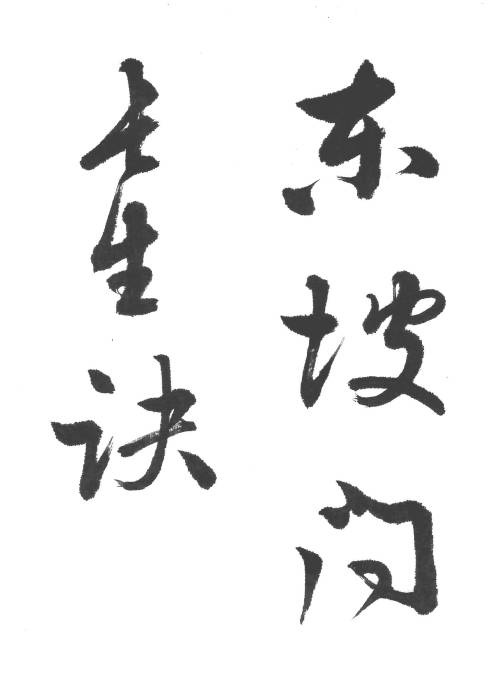 东坡问
长生诀